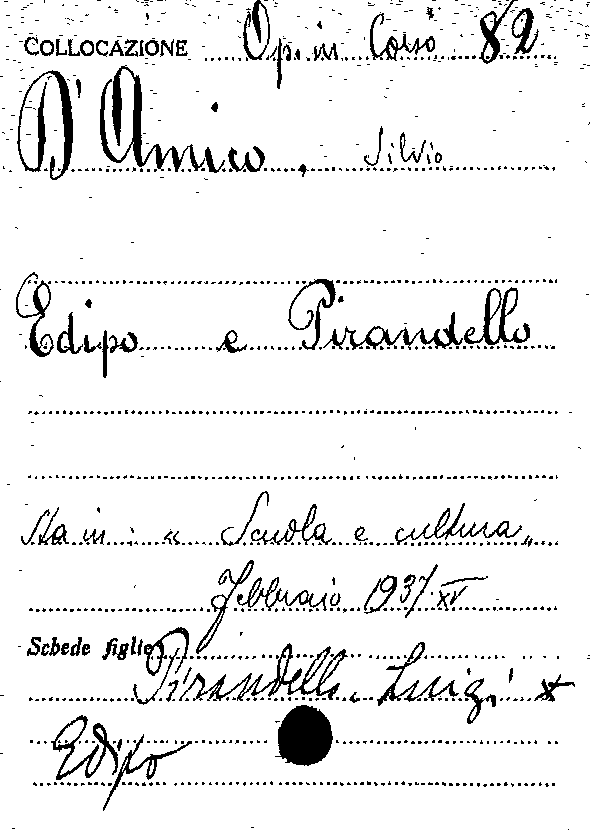 COLLOCAZIONE Op. in Corso 82
D'Amico, Silvio
Edipo e Pirandello
Sta in: « Scuola e cultura „
Febbraio 1937 XV
Schede figlie
Pirandello, Luigi x
Edipo